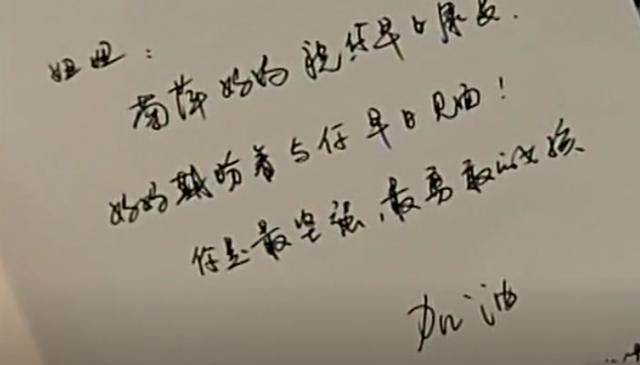 妞妞：
菊萍妈妈祝你早日康复.
妈妈期盼着与你早日见面！
你是最坚强,最勇敢的女孩
加油